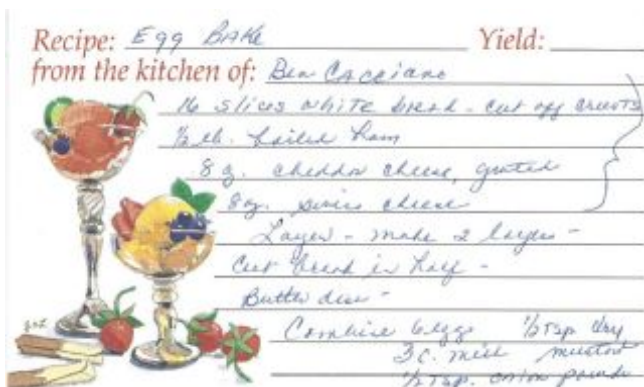 Recipe: Egg Bake Yield:
from the kitchen of: Ben Cacciano
16 slices white bread - cut off crusts
½ lb. boiled ham
8 oz. cheddar cheese, grated
8 oz. swiss cheese
Layer - make 2 layers -
Cut bread in half -
Butter dish -
Combine 6 eggs ½ tsp dry
3 c. milk mustard
½ tsp. onion powder